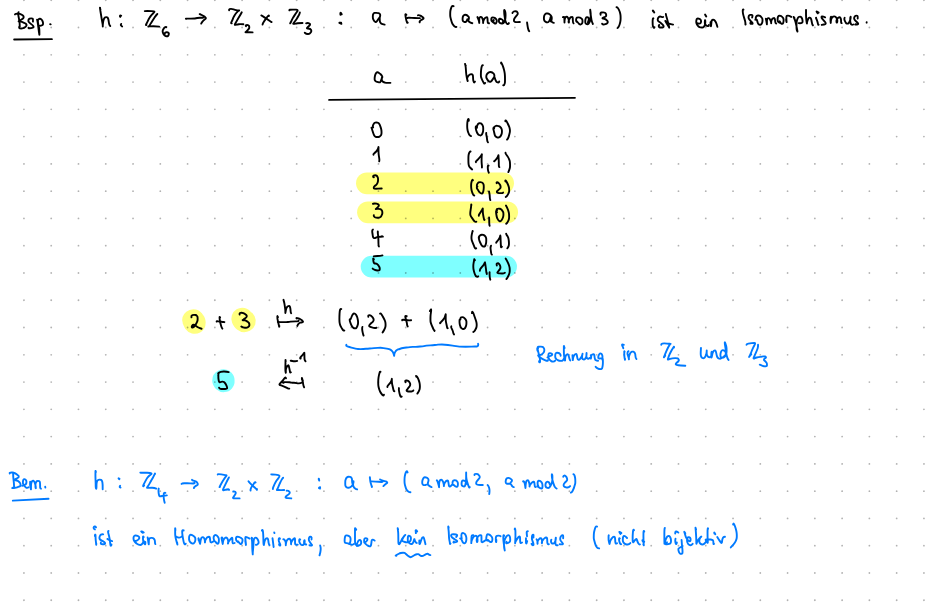 Bsp. h : ℤ₆ → ℤ₂ × ℤ₃ : a ↦ (a mod 2, a mod 3) ist ein Isomorphismus.
a h(a)
0 (0,0)
1 (1,1)
2 (0,2)
3 (1,0)
4 (0,1)
5 (1,2)
2 + 3 h ↦ (0,2) + (1,0)
Rechnung in ℤ₂ und ℤ₃
5 h⁻¹ ↤ (1,2)
Bem. h : ℤ₄ → ℤ₂ × ℤ₂ : a ↦ (a mod 2, a mod 2)
ist ein Homomorphismus, aber kein Isomorphismus (nicht bijektiv)